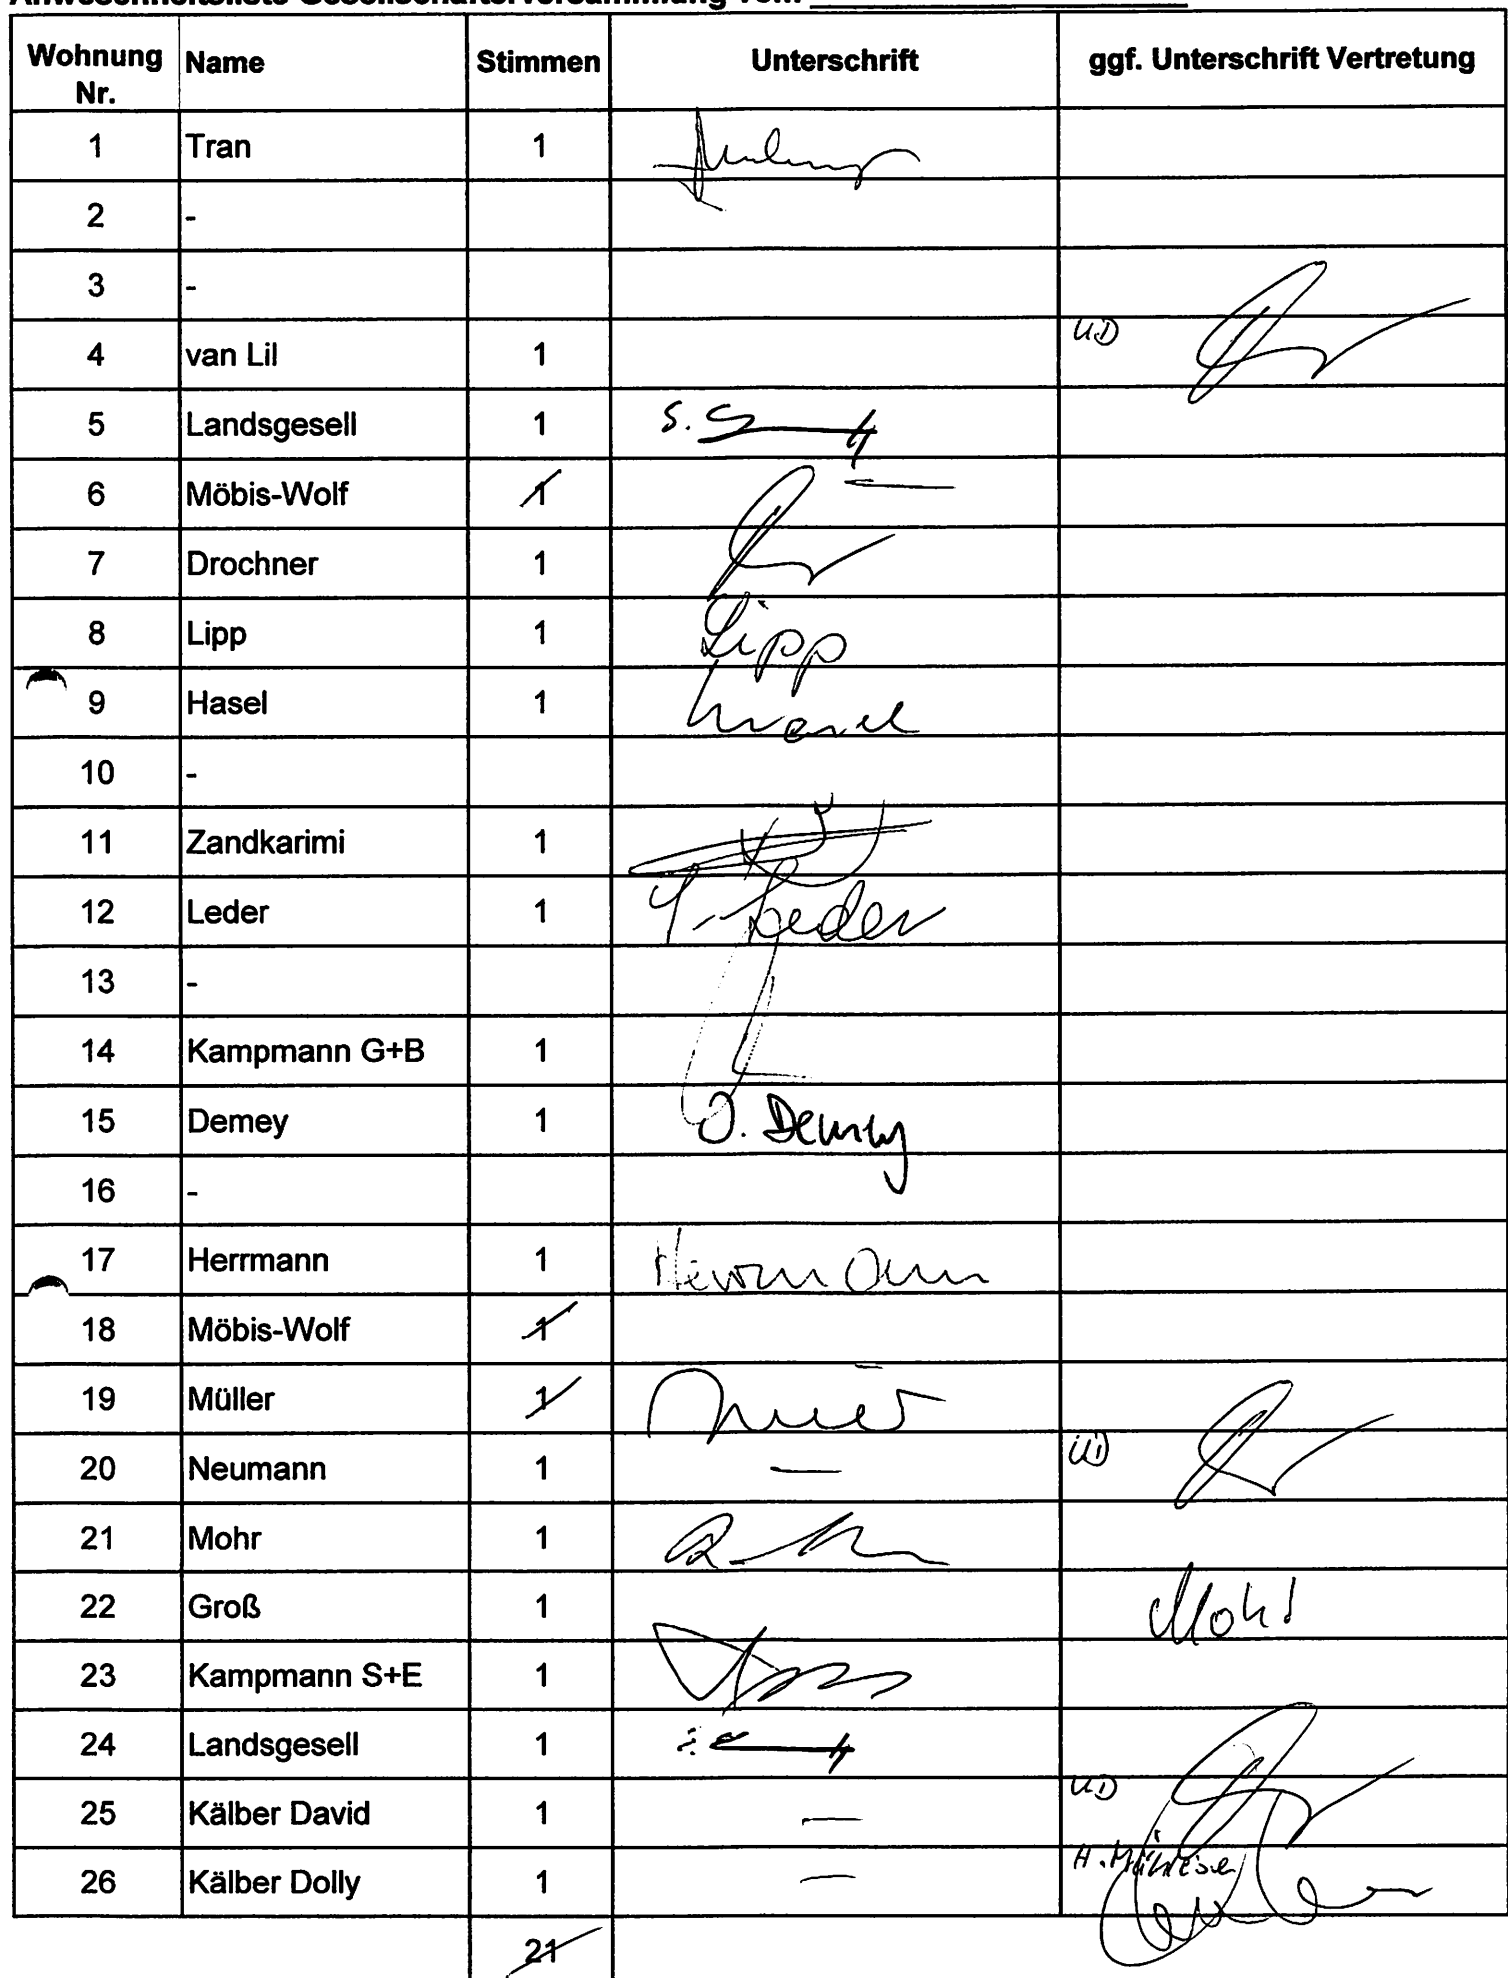 Anwesenheitsliste Gesellschafterversammlung vom
Wohnung Nr. Name Stimmen Unterschrift ggf. Unterschrift Vertretung
1 Tran 1
2 -
3 -
4 van Lil 1 UD
5 Landsgesell 1 S.
6 Möbis-Wolf 1 —
7 Drochner 1
8 Lipp 1 Lipp
9 Hasel 1
10 -
11 Zandkarimi 1
12 Leder 1 Leder
13 -
14 Kampmann G+B 1
15 Demey 1 J. Demey
16 -
17 Herrmann 1 Herrmann
18 Möbis-Wolf 1
19 Müller 1
20 Neumann 1 — UD
21 Mohr 1
22 Groß 1 Mohr
23 Kampmann S+E 1
24 Landsgesell 1
25 Kälber David 1 — UD
26 Kälber Dolly 1 — H.
21